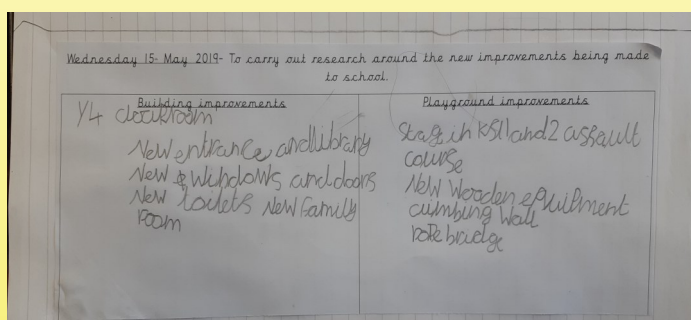 Wednesday 15- May 2019- To carry out research around the new improvements being made
to school.
Building improvements
Y4 cloakroom
New entrance and library
New windows and doors
New toilets New family
room
Playground improvements
Stage in KS1 and 2 assault
course
New wooden equipment
climbing wall
rope bridge